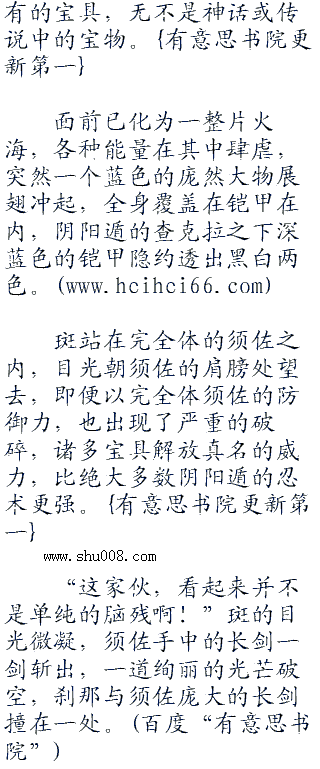 有的宝具，无不是神话或传
说中的宝物。{有意思书院更
新第一}
面前已化为一整片火
海，各种能量在其中肆虐，
突然一个蓝色的庞然大物展
翅冲起，全身覆盖在铠甲在
内，阴阳遁的查克拉之下深
蓝色的铠甲隐约透出黑白两
色。(www.hcihci66.com)
斑站在完全体的须佐之
内，目光朝须佐的肩膀处望
去，即便以完全体须佐的防
御力，也出现了严重的破
碎，诸多宝具解放真名的威
力，比绝大多数阴阳遁的忍
术更强。{有意思书院更新第
一}
www.shu008.com
“这家伙，看起来并不
是单纯的脑残啊！”斑的目
光微凝，须佐手中的长剑一
剑斩出，一道绚丽的光芒破
空，刹那与须佐庞大的长剑
撞在一处。(百度“有意思书
院”)